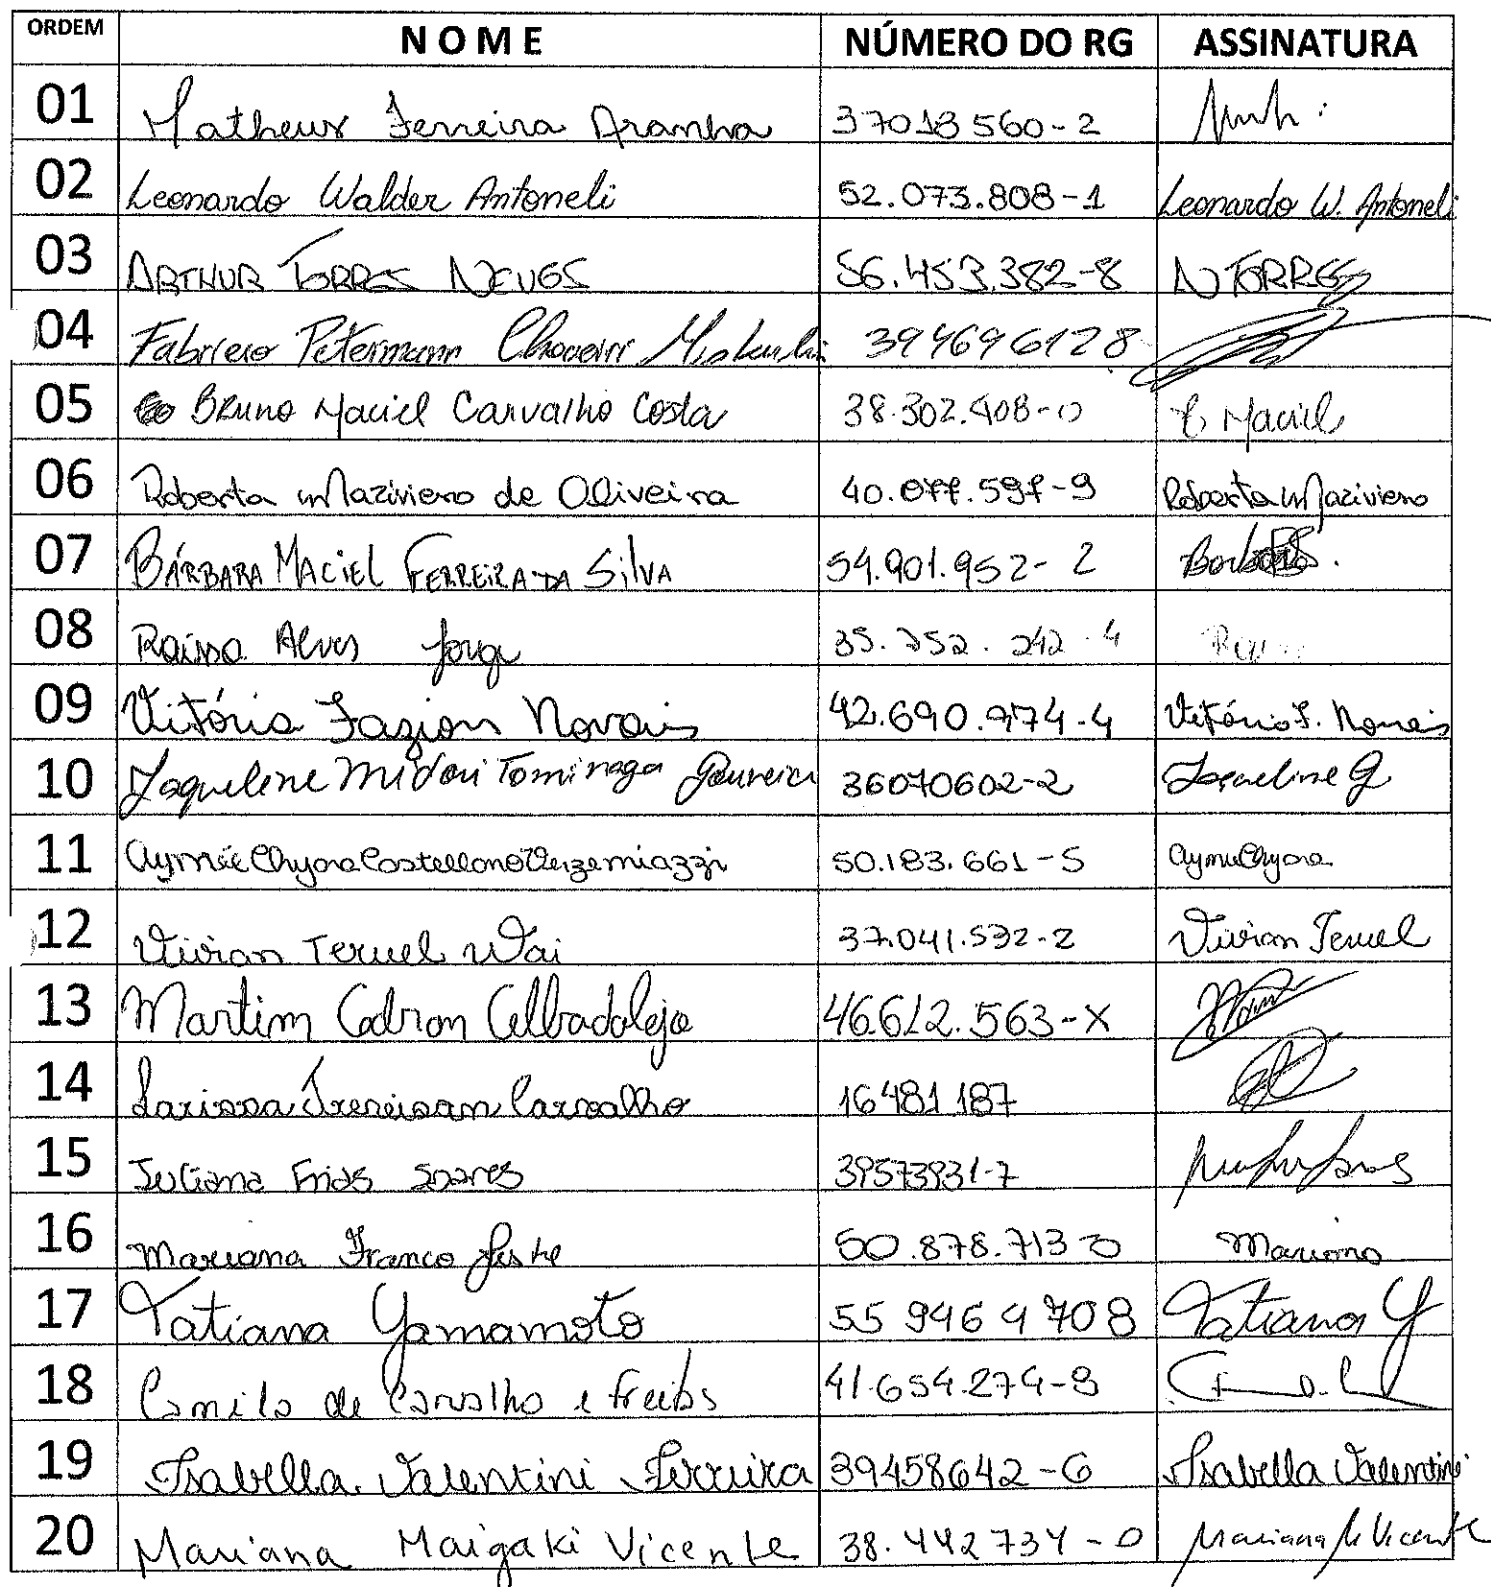 ORDEM NOME NÚMERO DO RG ASSINATURA
01 Matheus Ferreira Aranha 37018560-2
02 Leonardo Walder Antoneli 52.073.808-1 Leonardo W. Antoneli
03 ARTHUR TORRES NEVES 56.453.382-8 N TORRES
04 Fabricio Petermann 394696128
05 Bruno Maciel Carvalho Costa 38.302.408-0 B Maciel
06 Roberta Maziviero de Oliveira 40.077.597-9 Roberta Maziviero
07 BÁRBARA MACIEL FERREIRA DA SILVA 54.901.952-2
08 Raissa Alves Jorge 35.252.242-4
09 Vitória Fazion Novais 42.690.974-4 Vitória F. Novais
10 Jaqueline Midori Tominaga Gouveia 36070602-2 Jaqueline G
11 Aymée Chyara Costellano 50.183.661-5 Aymée Chyara
12 Vivian Teruel Wai 37.041.532-2 Vivian Teruel
13 Martim Codron Albadalejo 46.612.563-X
14 Larissa Carvalho 16481187
15 Juliana Frias Soares 39573931-7
16 Mariana Franco Leste 50.878.713-0 Mariana
17 Tatiana Yamamoto 55 946 9 708 Tatiana Y
18 Camila de Carvalho e Freitas 41.654.274-8
19 Isabella Valentini Ferreira 39458642-6 Isabella Valentini
20 Mariana Maigaki Vicente 38.442734-0 Mariana M Vicente